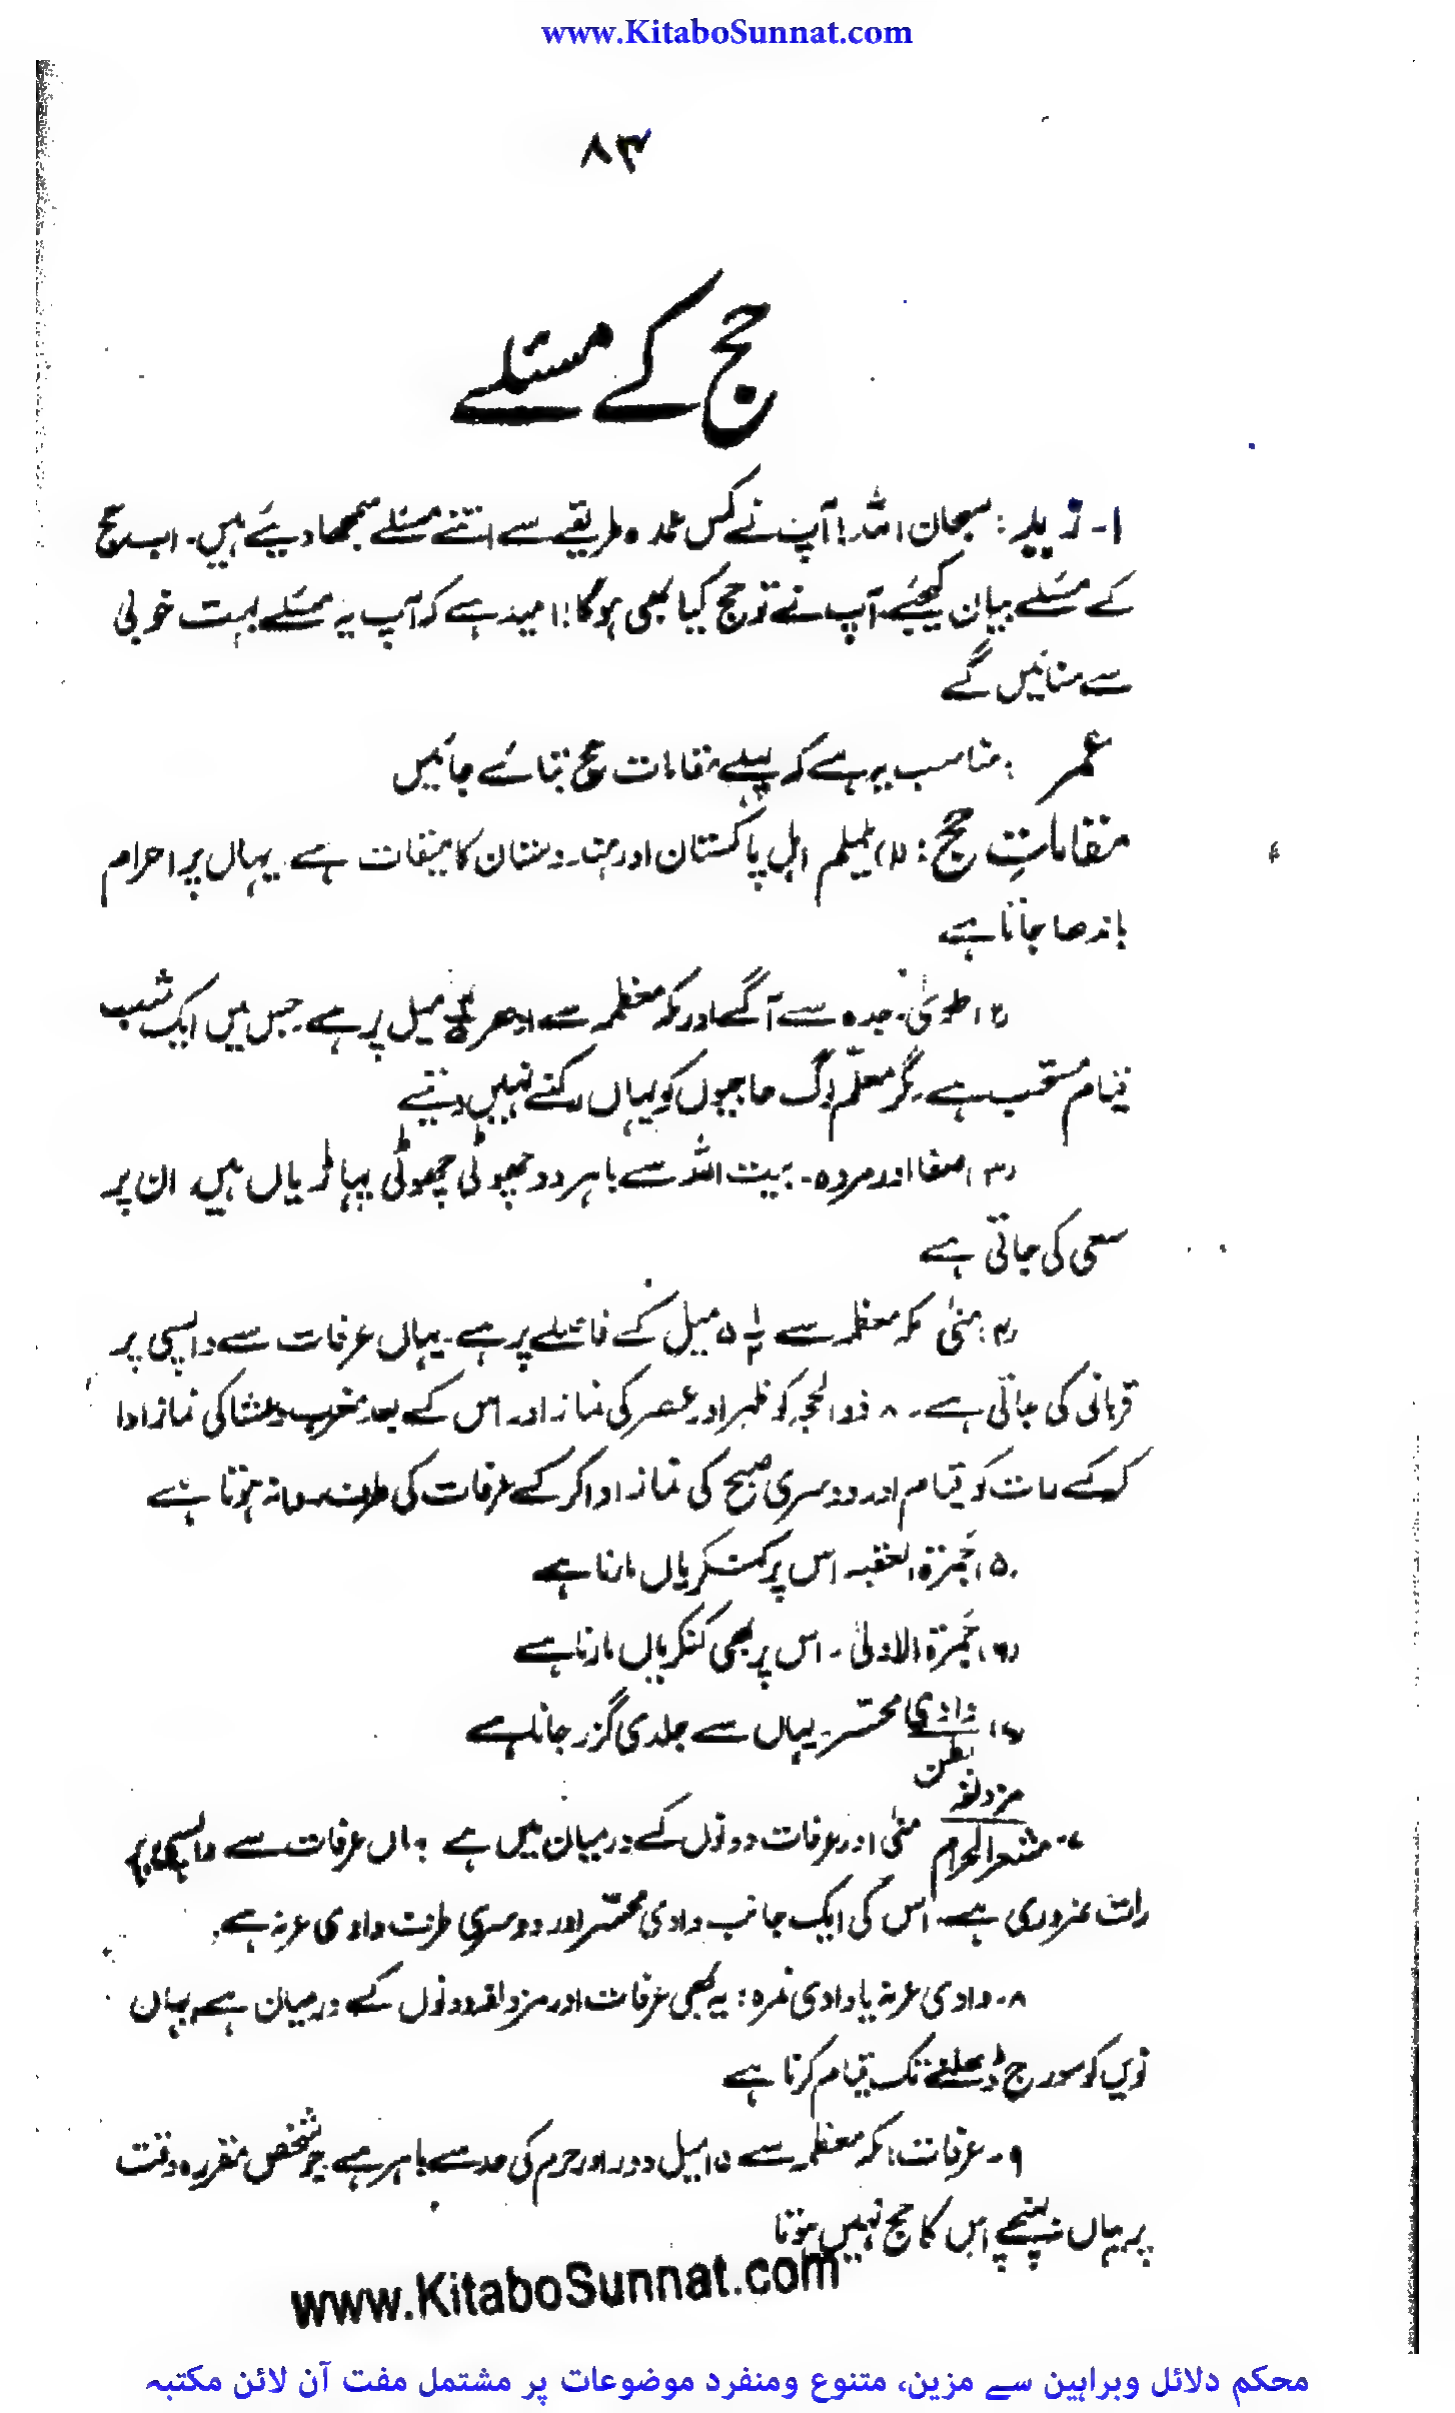 www.KitaboSunnat.com
۸۳
حج کے مسئلے
۱۔ زید : سبحان اللہ! آپ نے کس عمدہ طریقے سے اتنے مسئلے سمجھا دیئے ہیں۔ اب حج
کے مسئلے بیان کیجئے، آپ نے تو حج کیا بھی ہوگا! امید ہے کہ آپ یہ مسئلے بہت خوبی
سے سنائیں گے
عمر : مناسب یہ ہے کہ پہلے مقامات حج بتائے جائیں
مقاماتِ حج : (۱) یلملم اہل پاکستان اور ہندوستان کا میقات ہے۔ یہاں پر احرام
باندھا جاتا ہے
(۲) طویٰ۔ جدہ سے آگے اور مکہ معظمہ سے ادھر میل پر ہے۔ جس میں ایک شب
قیام مستحب ہے۔ مگر معلّم لوگ حاجیوں کو یہاں رکنے نہیں دیتے
(۳) صفا اور مروہ۔ بیت اللہ سے باہر دو چھوٹی چھوٹی پہاڑیاں ہیں۔ ان پر
سعی کی جاتی ہے
(۴) منیٰ مکہ معظمہ سے ۵ ۱/۲ میل کے فاصلے پر ہے۔ یہاں عرفات سے واپسی پر
قربانی کی جاتی ہے۔ ۸ ذوالحجہ کو ظہر اور عصر کی نماز اور اس کے بعد مغرب و عشا کی نماز ادا
کرکے رات کو قیام اور دوسری صبح کی نماز ادا کر کے عرفات کی طرف روانہ ہوتا ہے
(۵) جَمرۃ العقبہ اس پر کنکریاں مارنا ہے
(۶) جَمرۃ الاولیٰ۔ اس پر بھی کنکریاں مارنا ہے
(۷) وادی محسّر یہاں سے جلدی گزر جانا ہے
بطن
مزدلفہ
۷۔ مشعر الحرام منیٰ اور عرفات دونوں کے درمیان میں ہے یہاں عرفات سے واپسی
رات ضروری ہے۔ اس کی ایک جانب وادی محسّر اور دوسری طرف وادی عرنہ ہے۔
۸۔ وادی عرنہ یا وادی نمرہ : یہ بھی عرفات اور مزدلفہ دونوں کے درمیان ہے یہاں
نویں کو سورج ڈھلنے تک قیام کرنا ہے
۹۔ عرفات : مکہ معظمہ سے ۱۵ میل دور اور حرم کی حد سے باہر ہے جو شخص مقررہ وقت
پر یہاں نہ پہنچے اس کا حج نہیں ہوتا
www.KitaboSunnat.com
محکم دلائل وبراہین سے مزین، متنوع ومنفرد موضوعات پر مشتمل مفت آن لائن مکتبہ